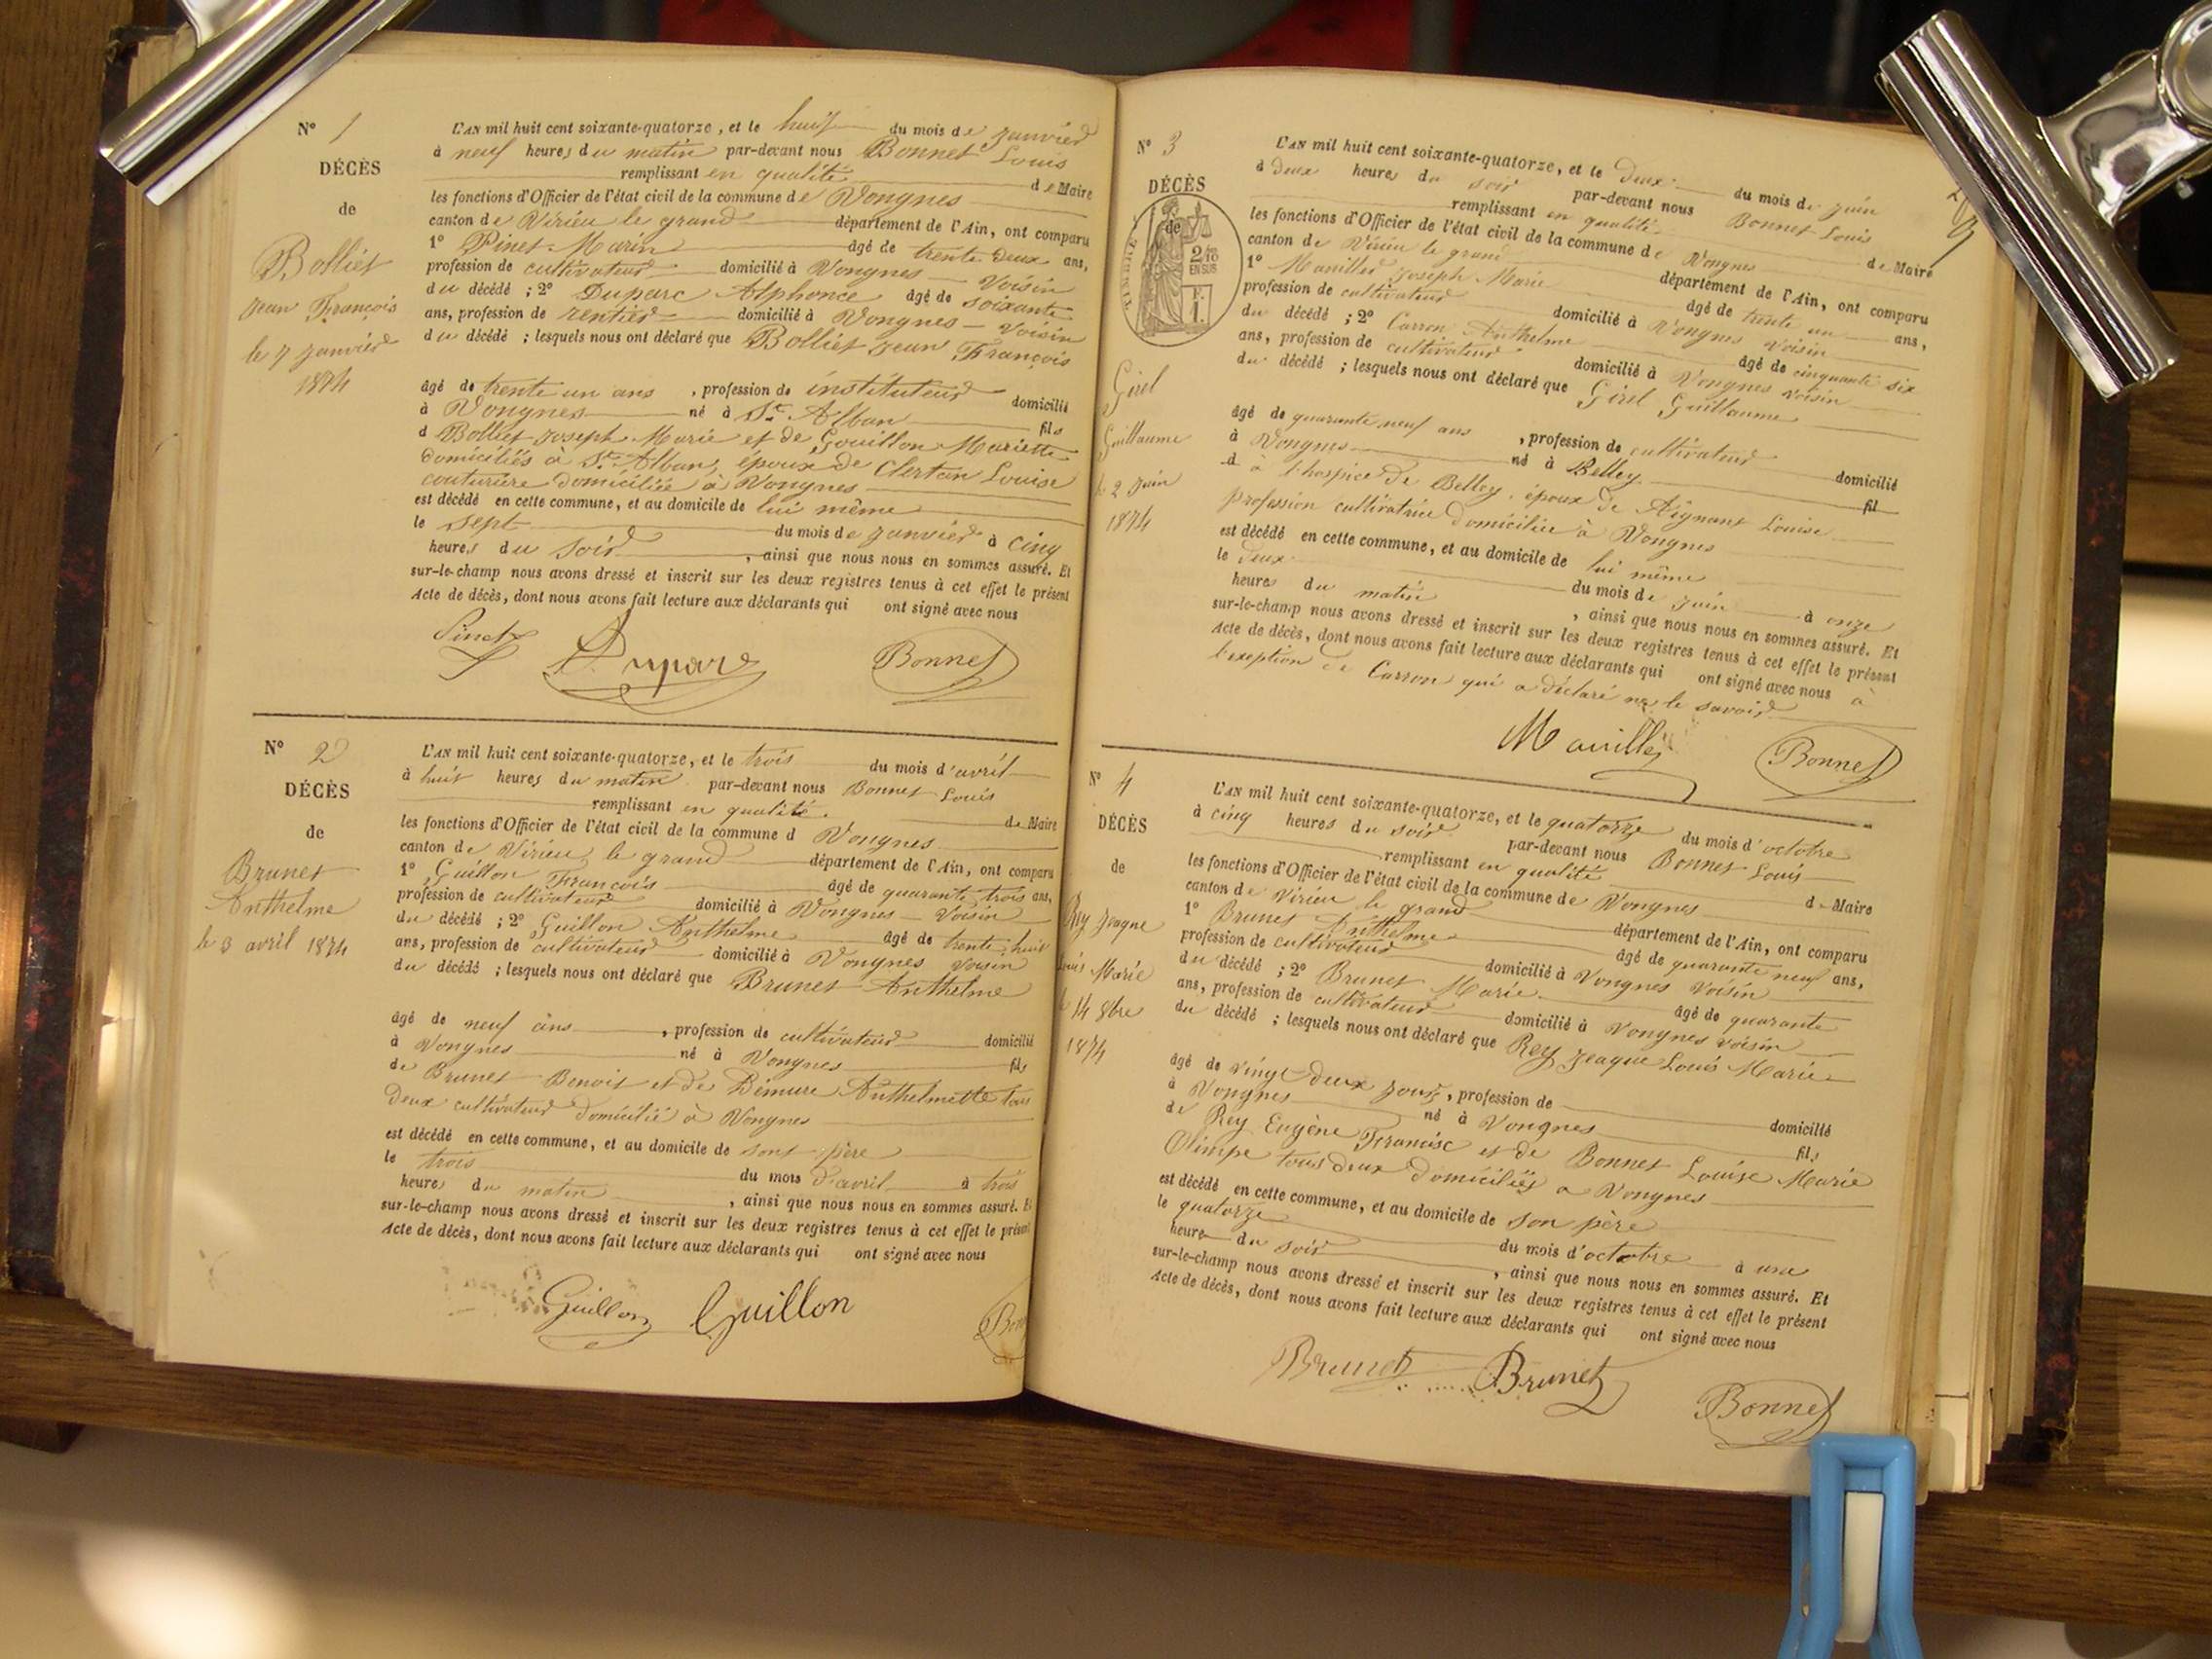 N° 1
DÉCÈS
de
Bolliet
Jean François
le 7 janvier
1874
L'AN mil huit cent soixante-quatorze, et le huit du mois de janvier
à neuf heures du matin par-devant nous Bonnet Louis
remplissant en qualité de Maire
les fonctions d'Officier de l'état civil de la commune de Vongnes
canton de Virieu le grand département de l'Ain, ont comparu
1° Pinet Marin âgé de trente deux ans,
profession de cultivateur domicilié à Vongnes voisin
du décédé ; 2° Duparc Alphonce âgé de soixante
ans, profession de rentier domicilié à Vongnes – voisin
du décédé ; lesquels nous ont déclaré que Bolliet Jean François
âgé de trente un ans, profession de instituteur domicilié
à Vongnes né à St. Alban fils
d Bolliet Joseph Marie et de Gouillon Mariette
domiciliés à St. Alban, époux de Clertan Louise
couturière domiciliée à Vongnes
est décédé en cette commune, et au domicile de lui même
le sept du mois de janvier à cinq
heures du soir, ainsi que nous nous en sommes assuré. Et
sur-le-champ nous avons dressé et inscrit sur les deux registres tenus à cet effet le présent
Acte de décès, dont nous avons fait lecture aux déclarants qui ont signé avec nous
Pinet Duparc Bonnet
N° 2
DÉCÈS
de
Brunet
Anthelme
le 3 avril 1874
L'AN mil huit cent soixante-quatorze, et le trois du mois d'avril
à huit heures du matin par-devant nous Bonnet Louis
remplissant en qualité de Maire
les fonctions d'Officier de l'état civil de la commune d Vongnes
canton de Virieu le grand département de l'Ain, ont comparu
1° Guillon François âgé de quarante trois ans,
profession de cultivateur domicilié à Vongnes – voisin
du décédé ; 2° Guillon Anthelme âgé de trente huit
ans, profession de cultivateur domicilié à Vongnes voisin
du décédé ; lesquels nous ont déclaré que Brunet Anthelme
âgé de neuf ans, profession de cultivateur domicilié
à Vongnes né à Vongnes fils
de Brunet Benoit et de Démure Anthelmette tous
deux cultivateur domicilié à Vongnes
est décédé en cette commune, et au domicile de sont père
le trois du mois d'avril à trois
heures du matin, ainsi que nous nous en sommes assuré. Et
sur-le-champ nous avons dressé et inscrit sur les deux registres tenus à cet effet le présent
Acte de décès, dont nous avons fait lecture aux déclarants qui ont signé avec nous
Guillon Guillon Bon
N° 3
DÉCÈS
de
TIMBRE
2/10
EN SUS
F.
1.
Girel
Guillaume
le 2 juin
1874
L'AN mil huit cent soixante-quatorze, et le deux du mois de juin
à deux heures du soir par-devant nous Bonnet Louis
remplissant en qualité de Maire
les fonctions d'Officier de l'état civil de la commune de Vongnes
canton de Virieu le grand département de l'Ain, ont comparu
1° Manillier Joseph Marie âgé de trente un ans,
profession de cultivateur domicilié à Vongnes voisin
du décédé ; 2° Carron Anthelme âgé de cinquante six
ans, profession de cultivateur domicilié à Vongnes voisin
du décédé ; lesquels nous ont déclaré que Girel Guillaume
âgé de quarante neuf ans, profession de cultivateur domicilié
à Vongnes né à Belley fil
d à l'hospice de Belley, époux de Aignant Louise
profession cultivatrice domiciliée à Vongnes
est décédé en cette commune, et au domicile de lui même
le deux du mois de juin à onze
heures du matin, ainsi que nous nous en sommes assuré. Et
sur-le-champ nous avons dressé et inscrit sur les deux registres tenus à cet effet le présent
Acte de décès, dont nous avons fait lecture aux déclarants qui ont signé avec nous à
l'exeption de Carron qui a déclaré ne le savoir
Bonnet
N° 4
DÉCÈS
de
Rey Jeaque
Louis Marie
le 14 8bre
1874
L'AN mil huit cent soixante-quatorze, et le quatorze du mois d'octobre
à cinq heures du soir par-devant nous Bonnet Louis
remplissant en qualité de Maire
les fonctions d'Officier de l'état civil de la commune de Vongnes
canton de Virieu le grand département de l'Ain, ont comparu
1° Brunet Anthelme âgé de quarante neuf ans,
profession de cultivateur domicilié à Vongnes voisin
du décédé ; 2° Brunet Marie âgé de quarante
ans, profession de cultivateur domicilié à Vongnes voisin
du décédé ; lesquels nous ont déclaré que Rey Jeaque Louis Marie
âgé de vingt deux jours, profession de domicilié
à Vongnes né à Vongnes fils
de Rey Eugène Francisc et de Bonnet Louise Marie
Olimpe tous deux domiciliés a Vongnes
est décédé en cette commune, et au domicile de son père
le quatorze du mois d'octobre à une
heure du soir, ainsi que nous nous en sommes assuré. Et
sur-le-champ nous avons dressé et inscrit sur les deux registres tenus à cet effet le présent
Acte de décès, dont nous avons fait lecture aux déclarants qui ont signé avec nous
Brunet Brunet Bonnet